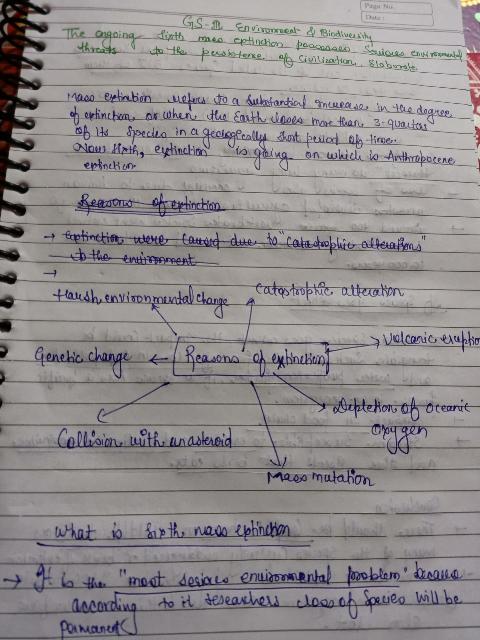 Page No.
Date:
GS-III Environment & Biodiversity
The ongoing sixth mass extinction possesses serious environmental
threats to the persistence of civilization. Elaborate
Mass extinction refers to a substantial increase in the degree
of extinction or when the Earth loses more than 3-quarter
of its species in a geologically short period of time.
Now sixth, extinction is going on which is Anthropocene
extinction
Reasons of extinction
→ Extinction were caused due to "catastrophic alterations"
to the environment
→
Harsh environmental change
Catastrophic alteration
Volcanic eruption
Genetic change
Reasons of extinction
Depletion of oceanic
oxygen
Collision with an asteroid
Mass mutation
What is sixth mass extinction
→ It is the "most serious environmental problem" because
according to it researchers loss of species will be
permanent